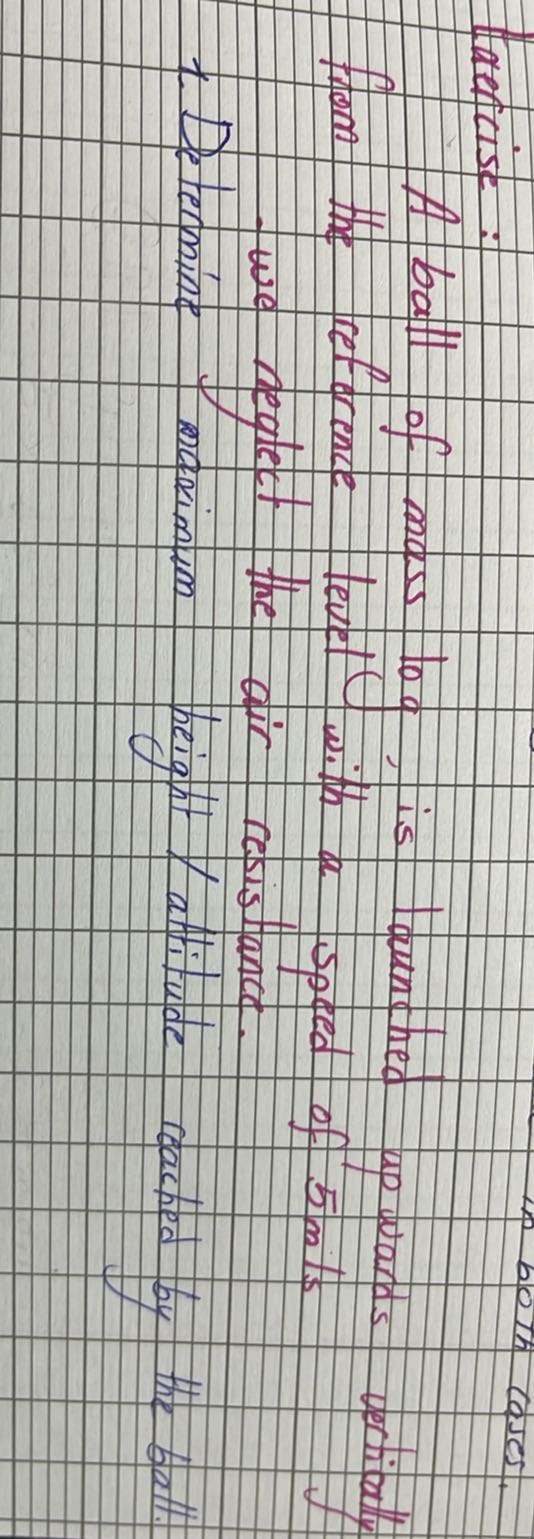 in both cases.
Exercise :
A ball of mass 10g, is launched upwards vertically
from the reference level with a speed of 5m/s
- we neglect the air resistance.
1. Determine maximum height / altitude reached by the ball.